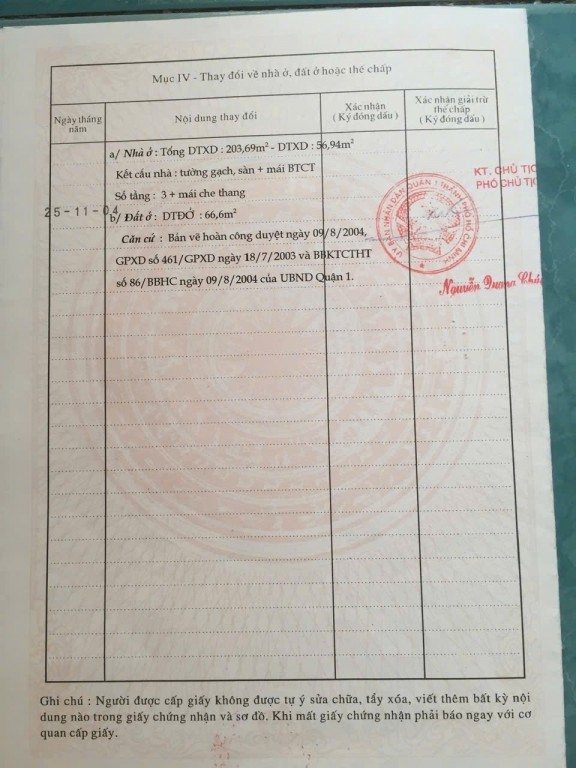 Mục IV - Thay đổi về nhà ở, đất ở hoặc thế chấp
Ngày tháng năm
Nội dung thay đổi
Xác nhận
( Ký đóng dấu )
Xác nhận giải trừ thế chấp
( Ký đóng dấu )
25-11-04
a/ Nhà ở : Tổng DTXD : 203,69m² - DTXD : 56,94m²
Kết cấu nhà : tường gạch, sàn + mái BTCT
Số tầng : 3 + mái che thang
b/ Đất ở : DTĐỞ : 66,6m²
Căn cứ : Bản vẽ hoàn công duyệt ngày 09/8/2004,
GPXD số 461/GPXD ngày 18/7/2003 và BBKTCTHT
số 86/BBHC ngày 09/8/2004 của UBND Quận 1.
KT. CHỦ TỊC
PHÓ CHỦ TỊ
ỦY BAN NHÂN DÂN QUẬN 1 THÀNH PHỐ HỒ CHÍ MINH
Nguyễn Quang
Ghi chú : Người được cấp giấy không được tự ý sửa chữa, tẩy xóa, viết thêm bất kỳ nội
dung nào trong giấy chứng nhận và sơ đồ. Khi mất giấy chứng nhận phải báo ngay với cơ
quan cấp giấy.